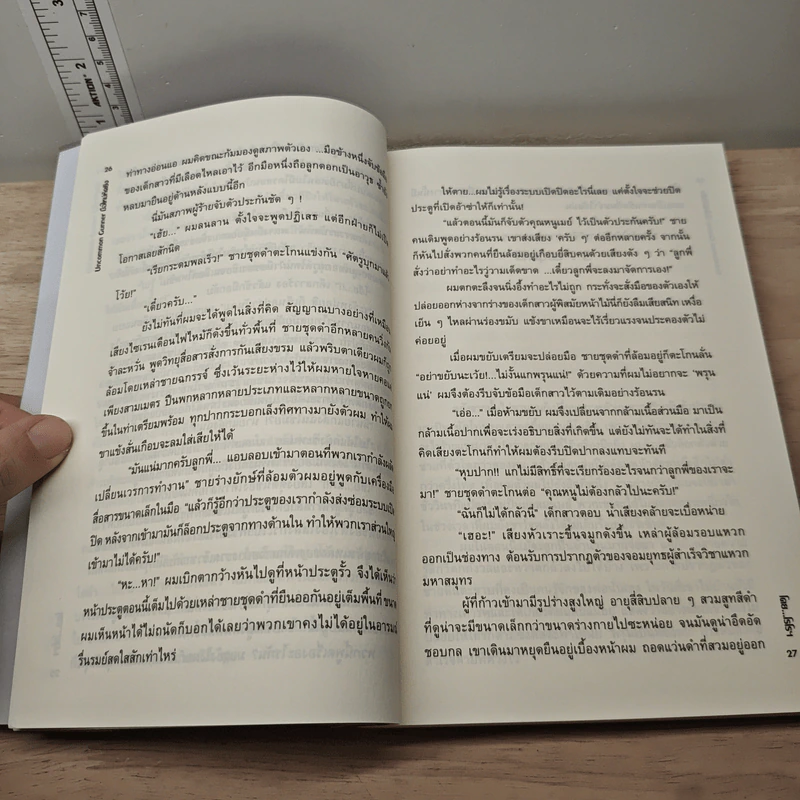 26
Uncommon Gunner
ท่าทางอ่อนแอ ผมคิดขณะก้มมองดูสภาพตัวเอง ...มือข้างหนึ่งจับข้อมือ
ของเด็กสาวที่มีเลือดไหลเอาไว้ อีกมือหนึ่งถือลูกดอกเป็นอาวุธ
หลบมายืนอยู่ด้านหลังแบบนี้อีก
นี่มันสภาพผู้ร้ายจับตัวประกันชัด ๆ !
“เฮ้ย...” ผมลนลาน ตั้งใจจะพูดปฏิเสธ แต่อีกฝ่ายก็ไม่เปิด
โอกาสเลยสักนิด
“เรียกระดมพลเร็ว!” ชายชุดดำตะโกนแข่งกัน “ศัตรูบุกมาแล้ว
โว้ย!”
“เดี๋ยวครับ...”
ยังไม่ทันที่ผมจะได้พูดในสิ่งที่คิด สัญญาณบางอย่างที่เหมือน
เสียงไซเรนเตือนไฟไหม้ก็ดังขึ้นทั่วพื้นที่ ชายชุดดำอีกหลายคนวิ่งกัน
จ้าละหวั่น พูดวิทยุสื่อสารสั่งการกันเสียงขรม แล้วพริบตาเดียวผมก็ถูก
ล้อมโดยเหล่าชายฉกรรจ์ ซึ่งเว้นระยะห่างไว้ให้ผมหายใจหายคอแค่
เพียงสามเมตร ปืนพกหลากหลายประเภทและหลากหลายขนาดถูกยก
ขึ้นในท่าเตรียมพร้อม ทุกปากกระบอกเล็งทิศทางมายังตัวผม ทำให้ผม
ขาแข้งสั่นเกือบจะลมใส่เสียให้ได้
“มันแน่มากครับลูกพี่... แอบลอบเข้ามาตอนที่พวกเรากำลังผลัด
เปลี่ยนเวรการทำงาน” ชายร่างยักษ์ที่ล้อมตัวผมอยู่พูดกับเครื่องมือ
สื่อสารขนาดเล็กในมือ “แล้วก็รู้อีกว่าประตูของเรากำลังส่งซ่อมระบบเปิด
ปิด หลังจากเข้ามามันก็ล็อกประตูจากทางด้านใน ทำให้พวกเราส่วนใหญ่
เข้ามาไม่ได้ครับ!”
“หะ...หา!” ผมเบิกตากว้างหันไปดูที่หน้าประตูรั้ว จึงได้เห็นว่า
หน้าประตูตอนนี้เต็มไปด้วยเหล่าชายชุดดำที่ยืนออกันอยู่เต็มพื้นที่ ขนาด
ผมเห็นหน้าได้ไม่ถนัดก็บอกได้เลยว่าพวกเขาคงไม่ได้อยู่ในอารมณ์
รื่นรมย์สดใสสักเท่าไหร่
ให้ตาย...ผมไม่รู้เรื่องระบบเปิดปิดอะไรนี่เลย แค่ตั้งใจจะช่วยปิด
ประตูที่เปิดอ้าซ่าให้ก็เท่านั้น!
“แล้วตอนนี้มันก็จับตัวคุณหนูเมย์ ไว้เป็นตัวประกันครับ!” ชาย
คนเดิมพูดอย่างร้อนรน เขาส่งเสียง ‘ครับ ๆ’ ต่ออีกหลายครั้ง จากนั้น
ก็หันไปสั่งพวกคนที่ยืนล้อมอยู่เกือบยี่สิบคนด้วยเสียงดัง ๆ ว่า “ลูกพี่
สั่งว่าอย่าทำอะไรวู่วามเด็ดขาด ...เดี๋ยวลูกพี่จะลงมาจัดการเอง!”
ผมตกตะลึงจนนิ่งอึ้งทำอะไรไม่ถูก กระทั่งจะสั่งมือของตัวเองให้
ปล่อยออกห่างจากร่างของเด็กสาวผู้พิสมัยหน้าไม้นี่ก็ยังลืมเสียสนิท เหงื่อ
เย็น ๆ ไหลผ่านร่องขมับ แข้งขาเหมือนจะไร้เรี่ยวแรงจนประคองตัวไม่
ค่อยอยู่
เมื่อผมขยับเตรียมจะปล่อยมือ ชายชุดดำที่ล้อมอยู่ก็ตะโกนลั่น
“อย่าขยับนะเว้ย!...ไม่งั้นแกพรุนแน่!” ด้วยความที่ผมไม่อยากจะ ‘พรุน
แน่’ ผมจึงต้องรีบจับข้อมือเด็กสาวไว้ตามเดิมอย่างร้อนรน
“เอ่อ...” เมื่อห้ามขยับ ผมจึงเปลี่ยนจากกล้ามเนื้อส่วนมือ มาเป็น
กล้ามเนื้อปากเพื่อจะเร่งอธิบายสิ่งที่เกิดขึ้น แต่ยังไม่ทันจะได้ทำในสิ่งที่
คิดเสียงตะโกนก็ทำให้ผมต้องรีบปิดปากลงแทบจะทันที
“หุบปาก!! แกไม่มีสิทธิ์ที่จะเรียกร้องอะไรจนกว่าลูกพี่ของเราจะ
มา!” ชายชุดดำตะโกนต่อ “คุณหนูไม่ต้องกลัวไปนะครับ!”
“ฉันก็ไม่ได้กลัวนี่” เด็กสาวตอบ น้ำเสียงคล้ายจะเบื่อหน่าย
“เฮอะ!” เสียงหัวเราะขึ้นจมูกดังขึ้น เหล่าผู้ล้อมรอบแหวก
ออกเป็นช่องทาง ต้อนรับการปรากฏตัวของจอมยุทธผู้สำเร็จวิชาแหวก
มหาสมุทร
ผู้ที่ก้าวเข้ามามีรูปร่างสูงใหญ่ อายุสี่สิบปลาย ๆ สวมสูทสีดำ
ที่ดูน่าจะมีขนาดเล็กกว่าขนาดร่างกายไปซะหน่อย จนมันดูน่าอึดอัด
ชอบกล เขาเดินมาหยุดยืนอยู่เบื้องหน้าผม ถอดแว่นดำที่สวมอยู่ออก
27